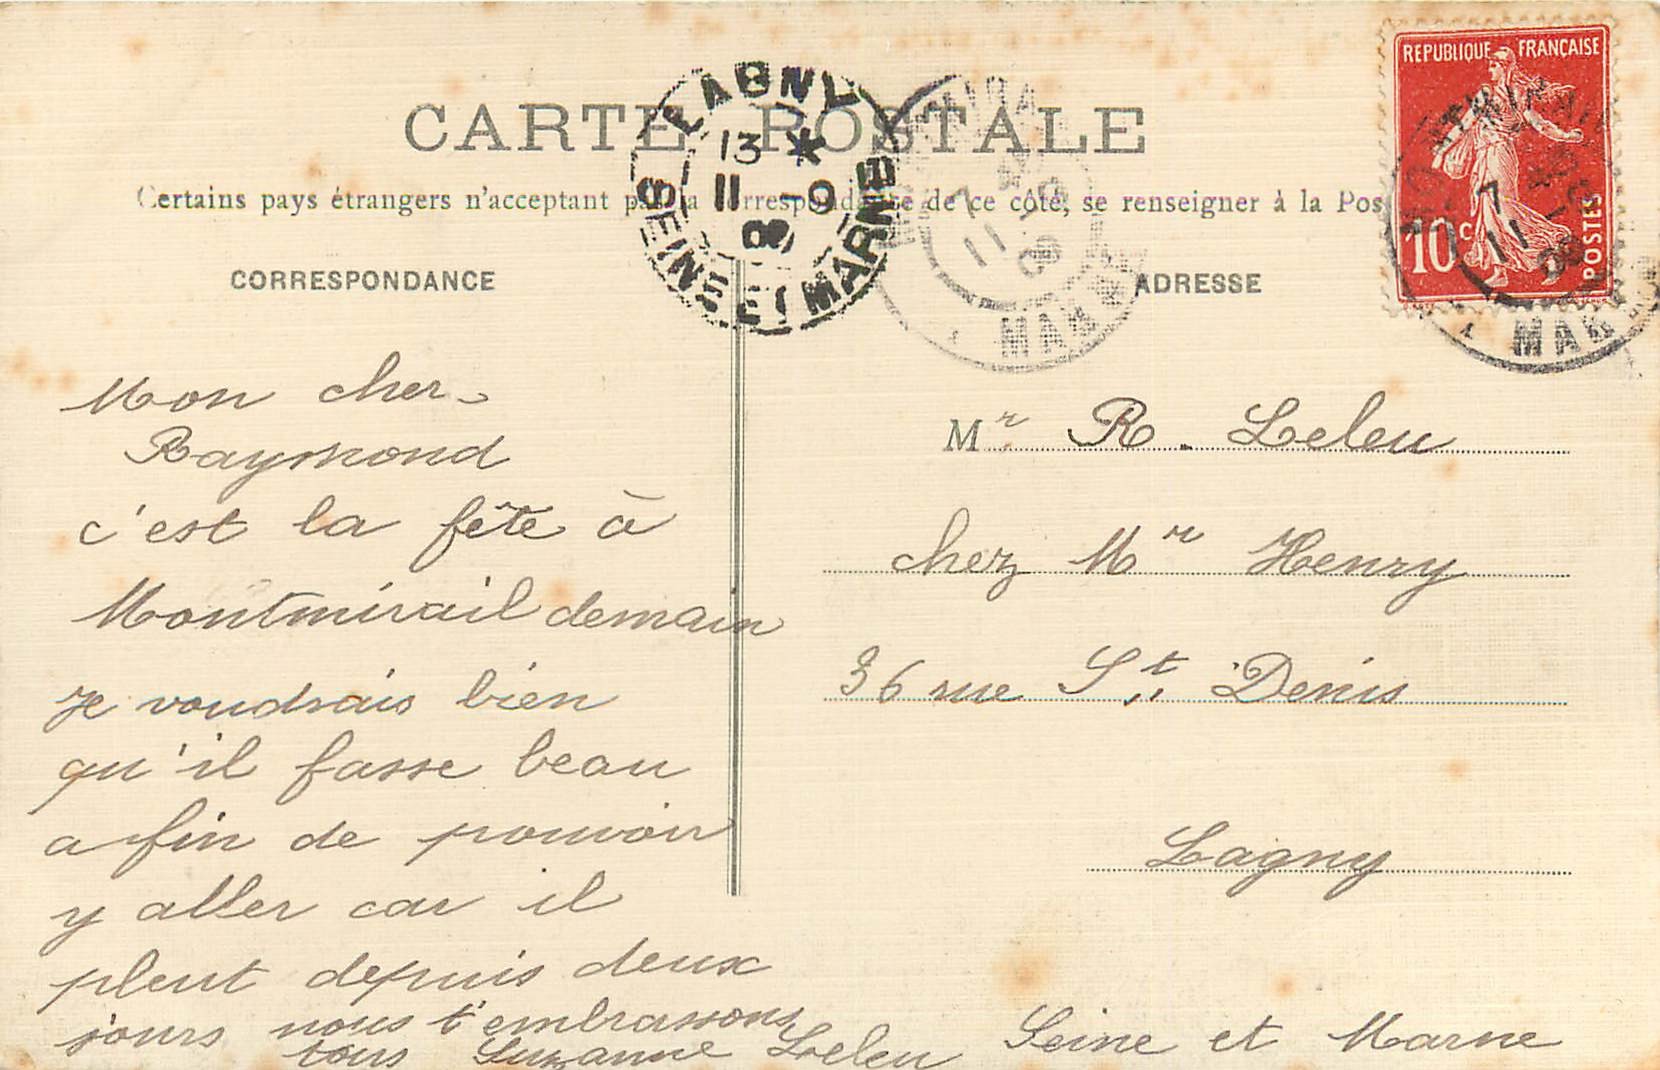 CARTE POSTALE
Certains pays étrangers n'acceptant pas la correspondance de ce côté, se renseigner à la Pos
CORRESPONDANCE
ADRESSE
REPUBLIQUE FRANÇAISE
10c
POSTES
LAGNY
13 *
11 - 9
09
SEINE ET MARNE
7
11 - 9
09
MARNE
Mon cher
Raymond
c'est la fête à
Montmirail demain
je voudrais bien
qu'il fasse beau
afin de pouvoir
y aller car il
pleut depuis deux
jours nous t'embrassons
tous Suzanne Leleu
Mr R. Leleu
chez Mr Henry
36 rue St Denis
Lagny
Seine et Marne